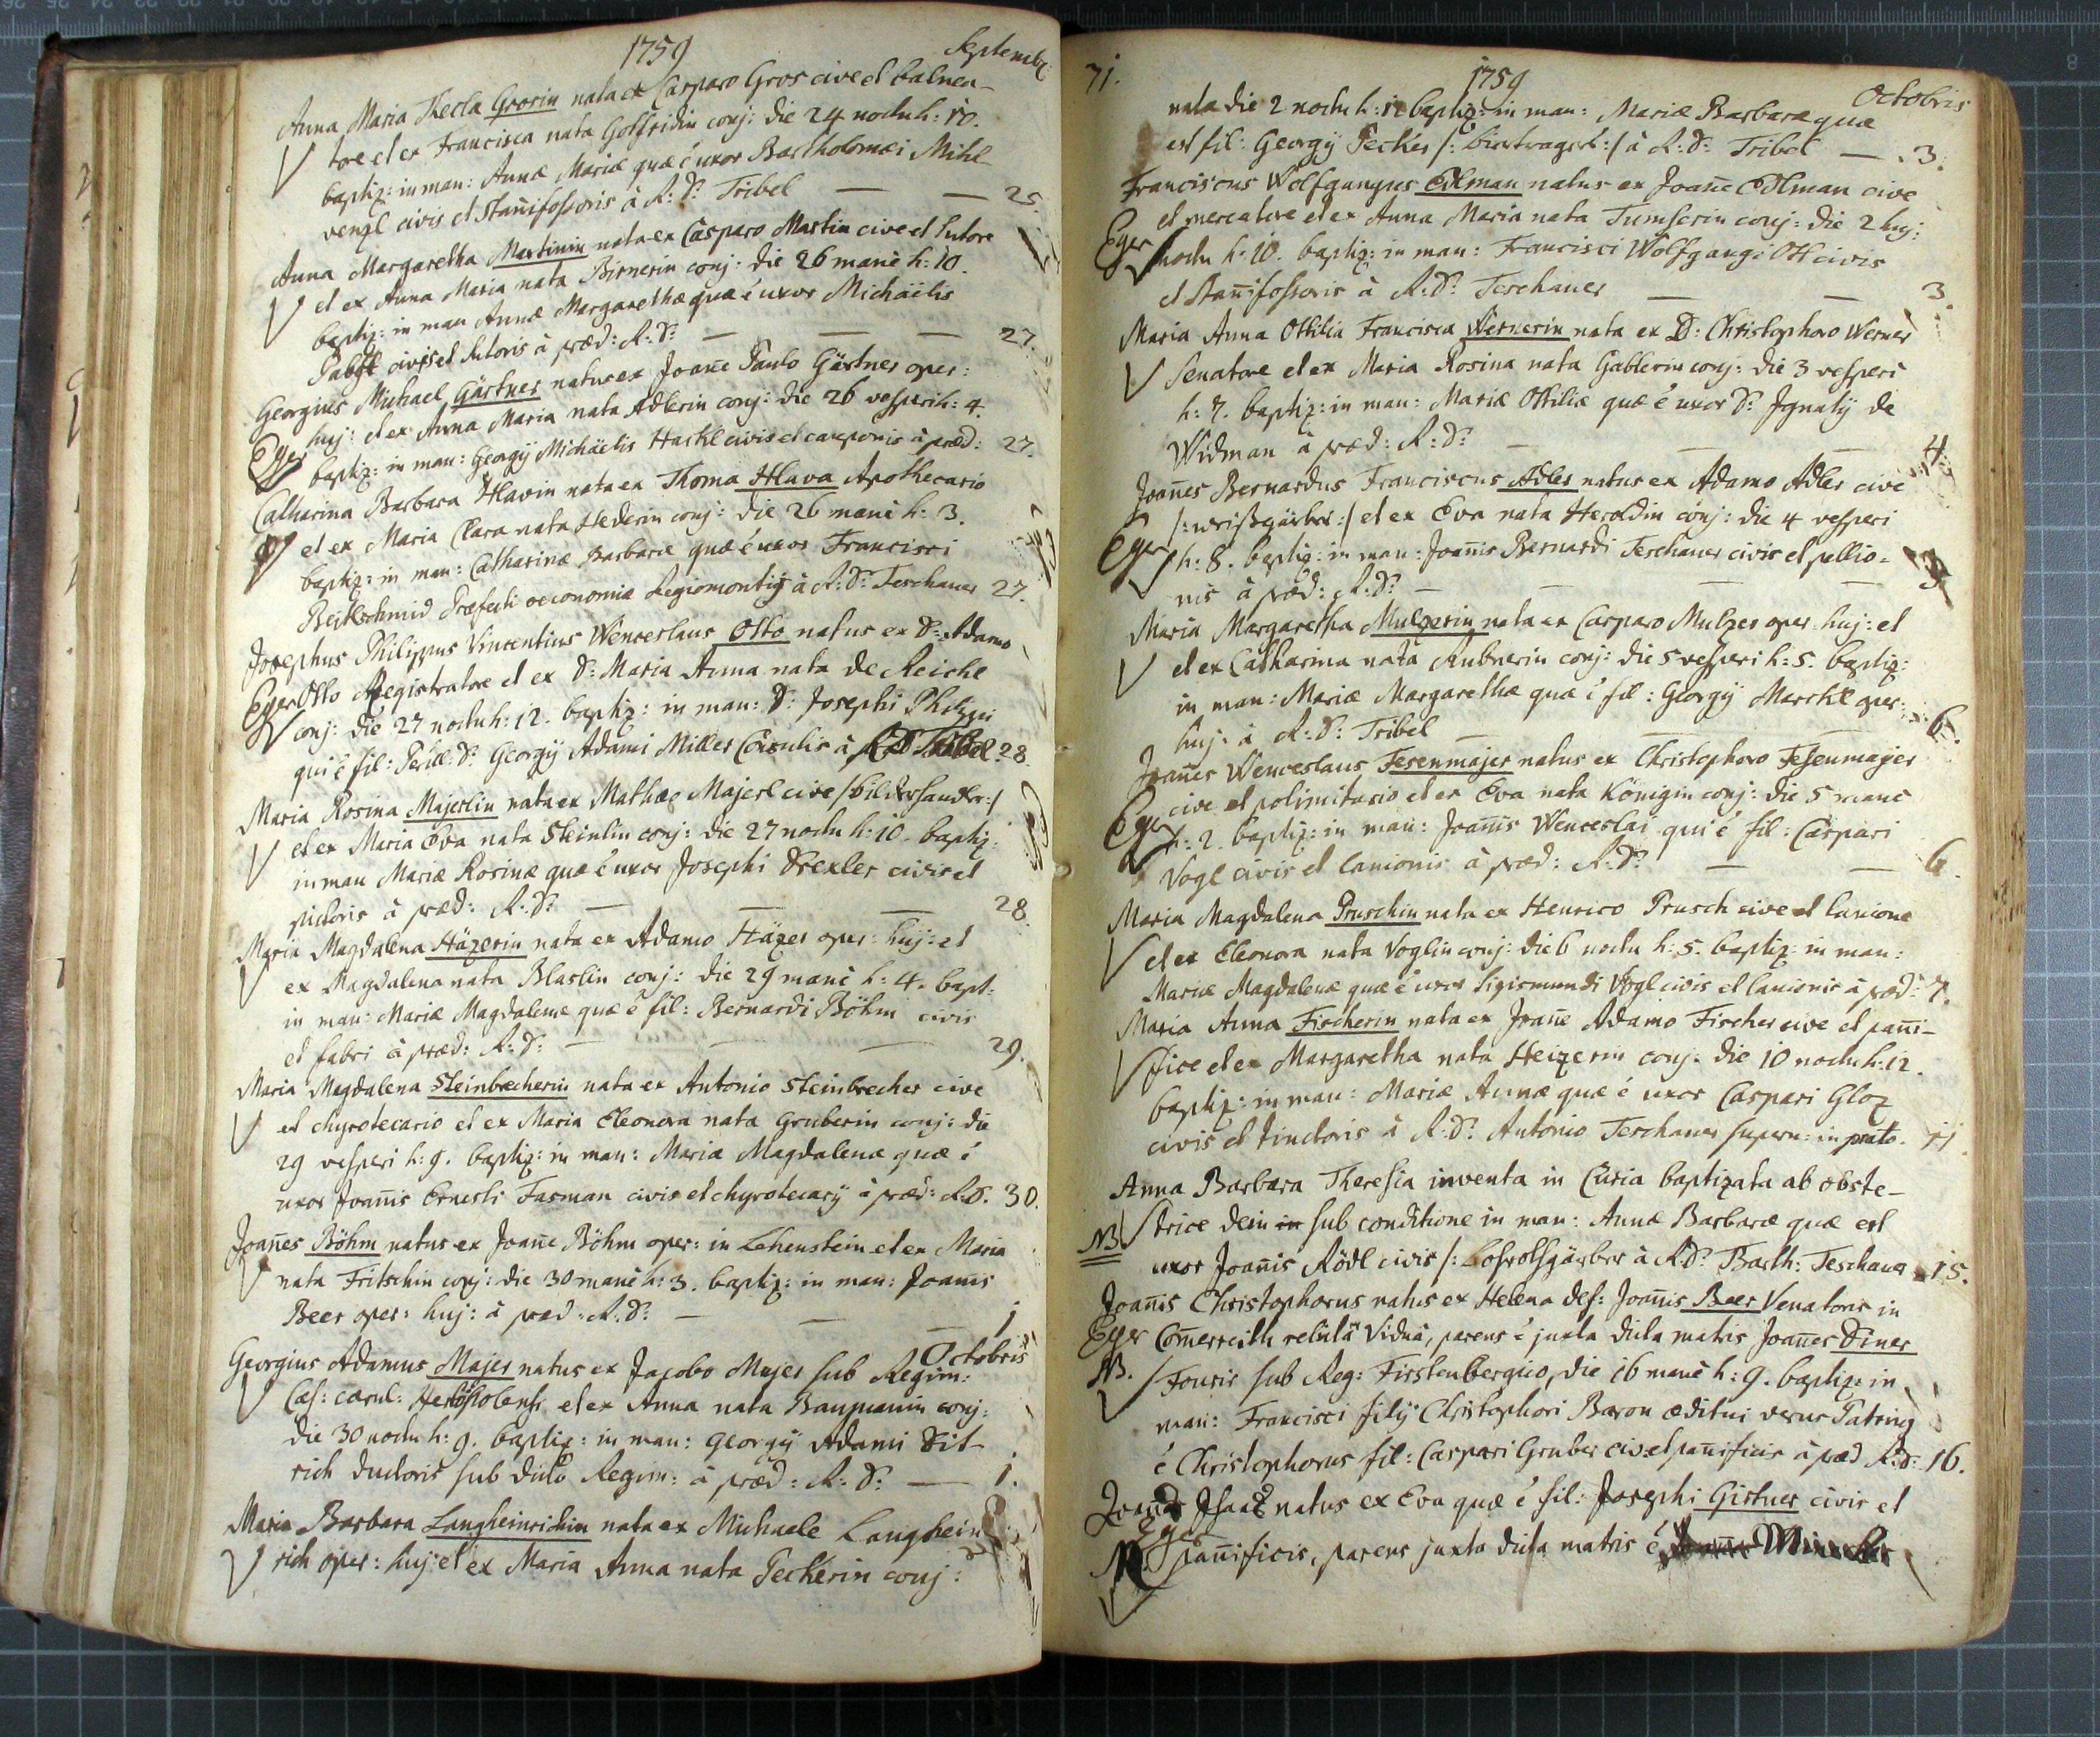 1759
Septembr:
Anna Maria Thecla Grosin nata ex Casparo Gros cive et balnea-
tore et ex Francisca nata Gottfridin conj: die 24 noctu h: 10.
baptiz: in man: Annæ Mariæ quæ é uxor Bartholomæi Mihl
venzl civis et stannifossoris à R: D: Tribel — — 25.
Anna Margaretha Martinin nata ex Casparo Martin cive et sutore
et ex Anna Maria nata Birnerin conj: die 26 mane h: 10.
baptiz: in man Annæ Margarethæ quæ é uxor Michäelis
Pabst civis et sutoris à præd: R: D: — — — 27.
Georgius Michael Gärtner natus ex Joane Paulo Gärtner oper:
huj: et ex Anna Maria nata Adlerin conj: die 26 vesperi h: 4.
Eger baptiz: in man: Georgij Michäelis Hartl civis et cauponis à præd: 27.
Catharina Barbara Hlavin nata ex Thoma Hlava Apothecario
et ex Maria Clara nata Hederin conj: die 26 mane h: 3.
baptiz: in man: Catharinæ Barbaræ quæ é uxor Francisci
Beitlschmid Præfecti oeconomiæ Regiomontij à R: D: Teschauer 27.
Josephus Philippus Vincentius Wenceslaus Otto natus ex D: Adamo
Eger Otto Registratore et ex D: Maria Anna nata de Reichl
conj: die 27 noctu h: 12. baptiz: in man: D: Josephi Philippi
qui é fil: Perill: D: Georgij Adami Miller Consulis à R: D: Tribel 28.
Maria Rosina Majerlin nata ex Mathæo Majerl cive /:bilderhandler:/
et ex Maria Eva nata Steinlin conj: die 27 noctu h: 10. baptiz:
in man Mariæ Rosinæ quæ é uxor Josephi Drexler civis et
pictoris à præd: R: D: — — — 28.
Maria Magdalena Häzerin nata ex Adamo Häzer oper: huj: et
ex Magdalena nata Blaslin conj: die 29 mane h: 4. bapt:
in man: Mariæ Magdalenæ quæ é fil: Bernardi Böhm civis
et fabri à præd: R: D: — — — 29.
Maria Magdalena Steinbrecherin nata ex Antonio Steinbrecher cive
et chyrotecario et ex Maria Eleonora nata Gruberin conj: die
29 vesperi h: 9. baptiz: in man: Mariæ Magdalenæ quæ é
uxor Joannis Ernesti Fasman civis et chyrotecarij à præd: R: D: 30.
Joannes Böhm natus ex Joane Böhm oper: in Lehenstein et ex Maria
nata Fritschin conj: die 30 mane h: 3. baptiz: in man: Joannis
Beer oper: huj: à præd: R: D: — — — 1
Octobris
Georgius Adamus Majer natus ex Jacobo Majer sub Regim:
Cæs: cærul: et ex Anna nata Baumanin conj:
die 30 noctu h: 9. baptiz: in man: Georgij Adami Dit-
rich ductoris sub dicto Regim: à præd: R: D: — 1.
Maria Barbara Langheinrichin nata ex Michaele Langhein
rich oper: huj: et ex Maria Anna nata Peckerin conj:
71.
1759
Octobris
nata die 2 noctu h: 12 baptiz: in man: Mariæ Barbaræ quæ
est fil: Georgij Pecker /: biertrager :/ à R: D: Tribel — 3.
Franciscus Wolfgangus Edlman natus ex Joane Edlman cive
et mercatore et ex Anna Maria nata Tumserin conj: die 2 huj:
Eger noctu h: 10. baptiz: in man: Francisci Wolfgangi Ott civis
et stannifossoris à R: D: Teschauer — — 3.
Maria Anna Ottilia Francisca Wernerin nata ex D: Christophoro Werner
Senatore et ex Maria Rosina nata Gablerin conj: die 3 vesperi
h: 7. baptiz: in man: Mariæ Ottiliæ quæ é uxor D: Ignatij de
Widman à præd: R: D: — — — 4.
Joannes Bernardus Franciscus Adler natus ex Adamo Adler cive
/: weißgärber :/ et ex Eva nata Heroldin conj: die 4 vesperi
Eger h: 8. baptiz: in man: Joannis Bernardi Teschauer civis et pellio-
nis à præd: R: D: — — —
Maria Margaretha Mulzerin nata ex Casparo Mulzer oper huj: et
et ex Catharina nata Rubnerin conj: die 5 vesperi h: 5. baptiz:
in man: Mariæ Margarethæ quæ é fil: Georgij Marckl oper:
huj: à R: D: Tribel — — 6.
Joannes Wenceslaus Fesenmajer natus ex Christophoro Fesenmayer
cive et polimitario et ex Eva nata Königin conj: die 5 mane
Eger h: 2. baptiz: in man: Joannis Wenceslai qui é fil: Caspari
Vogl civis et lanionis à præd: R: D: — — 6.
Maria Magdalena Pruschin nata ex Henrico Prusch cive et lanione
et ex Eleonora nata Voglin conj: die 6 noctu h: 5. baptiz: in man:
Mariæ Magdalenæ quæ é uxor Sigismundi Vogl civis et lanionis à præd: 7.
Maria Anna Fischerin nata ex Joane Adamo Fischer cive et panni-
fice et ex Margaretha nata Heizerin conj: die 10 noctu h: 12.
baptiz: in man: Mariæ Annæ quæ é uxor Caspari Gloz
civis et tinctoris à R: D: Antonio Teschauer supern: in prato. 11.
Anna Barbara Theresia inventa in Curia baptizata ab obste-
trice dein in sub conditione in man: Annæ Barbaræ quæ est
NB uxor Joannis Rödl civis /: Lohrothgärber à R: D: Barth: Teschauer 15.
Joannis Christophorus natus ex Helena def: Joannis Beer Venatoris in
Eger Comerreith relicta Vidua, parens é juxta dicta matris Joannes Diner
NB. Fourir sub Reg: Firstenbergico, die 16 mane h: 9. baptiz: in
man: Francisci filij Christophori Baron æditui verus Patrinus
é Christophorus fil: Caspari Gruber civ: et panificis à præd R: D: 16.
Joanes Isaac natus ex Eva quæ é fil: Josephi Girtner civis et
Eger
NB panificis, parens juxta dicta matris é